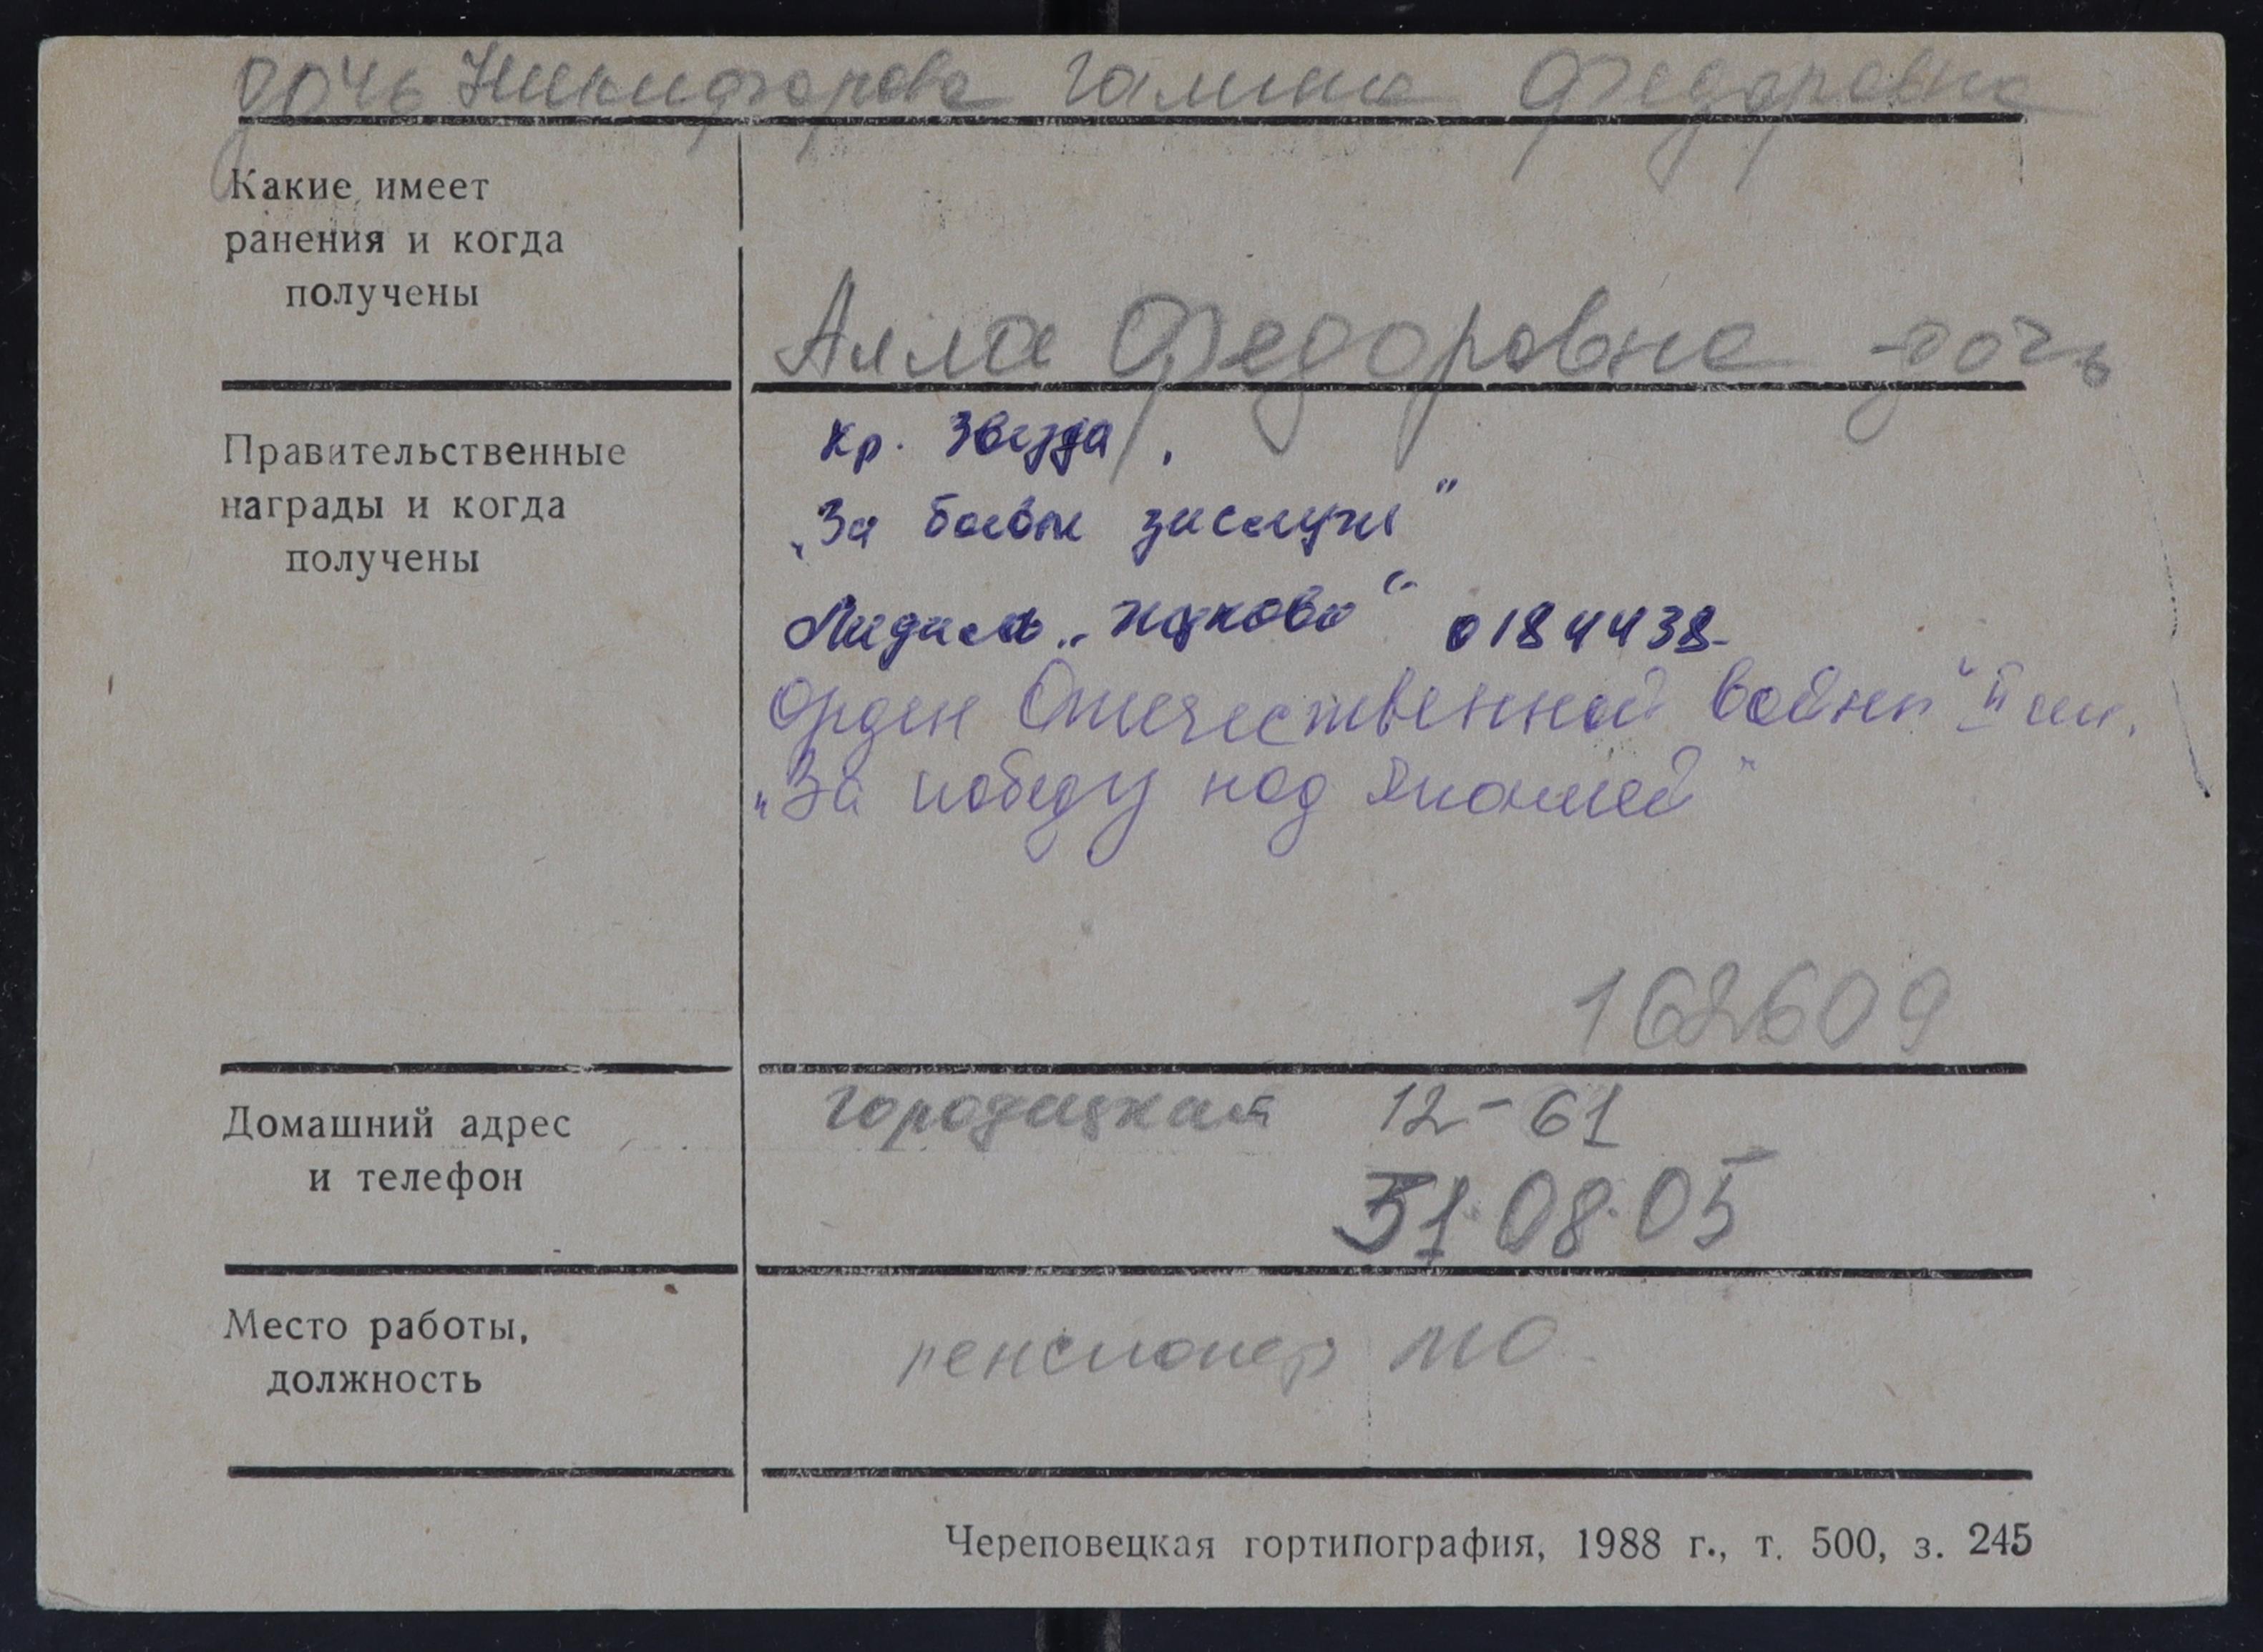 дочь Никифорова Галина Федоровна
Какие имеет
ранения и когда
получены
Алла Федоровна - дочь
Правительственные
награды и когда
получены
Кр. Звезда,
„За боевые заслуги"
Медаль „Жукова" 0184438
Орден Отечественной войны" II ст.
„За победу над Японией"
162609
Домашний адрес
и телефон
Городецкая 12-61
51.08.05
Место работы,
должность
пенсионер МО
Череповецкая гортипография, 1988 г., т. 500, з. 245